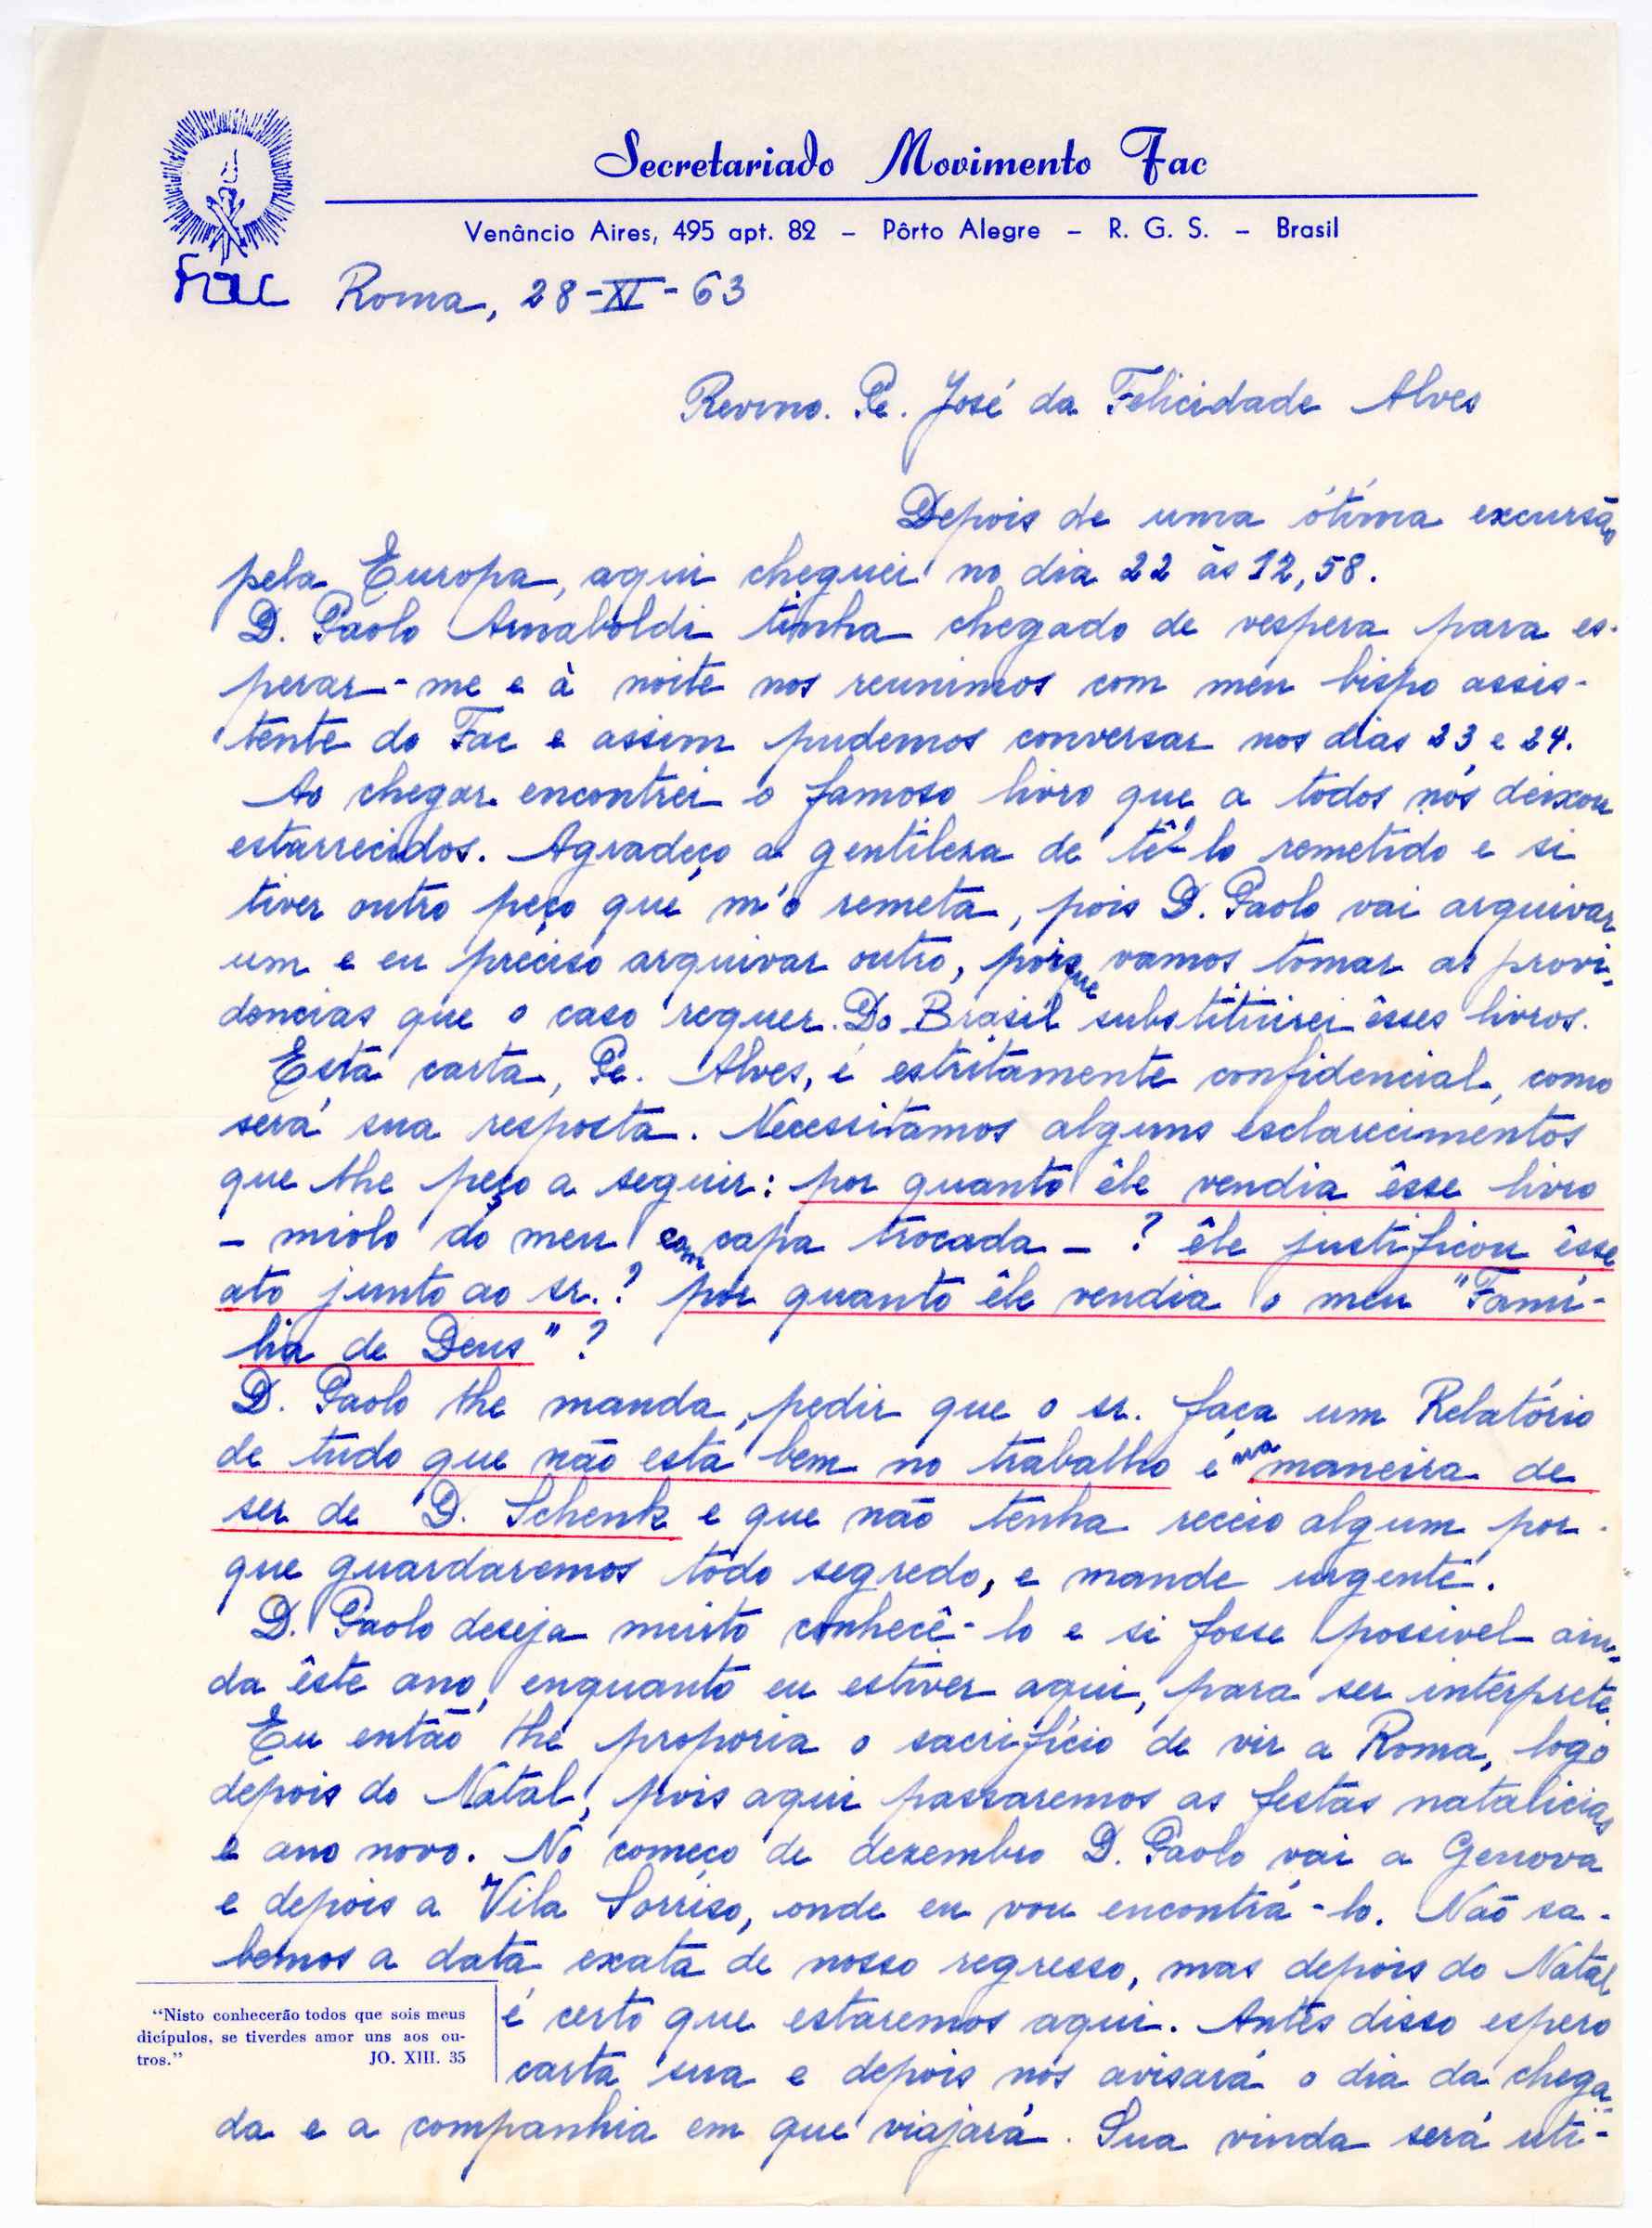 Secretariado Movimento Fac
Venâncio Aires, 495 apt. 82 – Pôrto Alegre – R. G. S. – Brasil
Fac
Roma, 28-XI-63
Revmo. Pe. José da Felicidade Alves
Depois de uma ótima excursão
pela Europa, aqui cheguei no dia 22 às 12,58.
D. Paolo Arnaboldi tinha chegado de vespera para es-
perar-me e à noite nos reunimos com meu bispo assis-
tente do Fac e assim pudemos conversar nos dias 23 e 24.
Ao chegar encontrei o famoso livro que a todos nós deixou
estarrecidos. Agradeço a gentileza de tê-lo remetido e si
tiver outro peço que m'o remeta, pois D. Paolo vai arquivar
um e eu preciso arquivar outro, porque vamos tomar as provi-
dencias que o caso requer. Do Brasil substituirei êsses livros.
Esta carta, Pe. Alves, é estritamente confidencial, como
será sua resposta. Necessitamos alguns esclarecimentos
que lhe peço a seguir: por quanto êle vendia êsse livro
- miolo do meu com capa trocada - ? êle justificou êsse
ato junto ao sr.? por quanto êle vendia o meu "Famí-
lia de Deus"?
D. Paolo lhe manda pedir que o sr. faça um Relatório
de tudo que não está bem no trabalho e na maneira de
ser de D. Schenk e que não tenha receio algum por-
que guardaremos todo segredo, e mande urgente.
D. Paolo deseja muito conhecê-lo e si fosse possivel ain-
da êste ano, enquanto eu estiver aqui, para ser interprete.
Eu então lhe proporia o sacrifício de vir a Roma, logo
depois do Natal, pois aqui passaremos as festas natalicias
e ano novo. No começo de dezembro D. Paolo vai a Genova
e depois a Vila Sorriso, onde eu vou encontrá-lo. Não sa-
bemos a data exata de nosso regresso, mas depois do Natal
é certo que estaremos aqui. Antes disso espero
carta sua e depois nos avisará o dia da chega-
da e a companhia em que viajará. Sua vinda será uti-
“Nisto conhecerão todos que sois meus
dicípulos, se tiverdes amor uns aos ou-
tros.” JO. XIII. 35